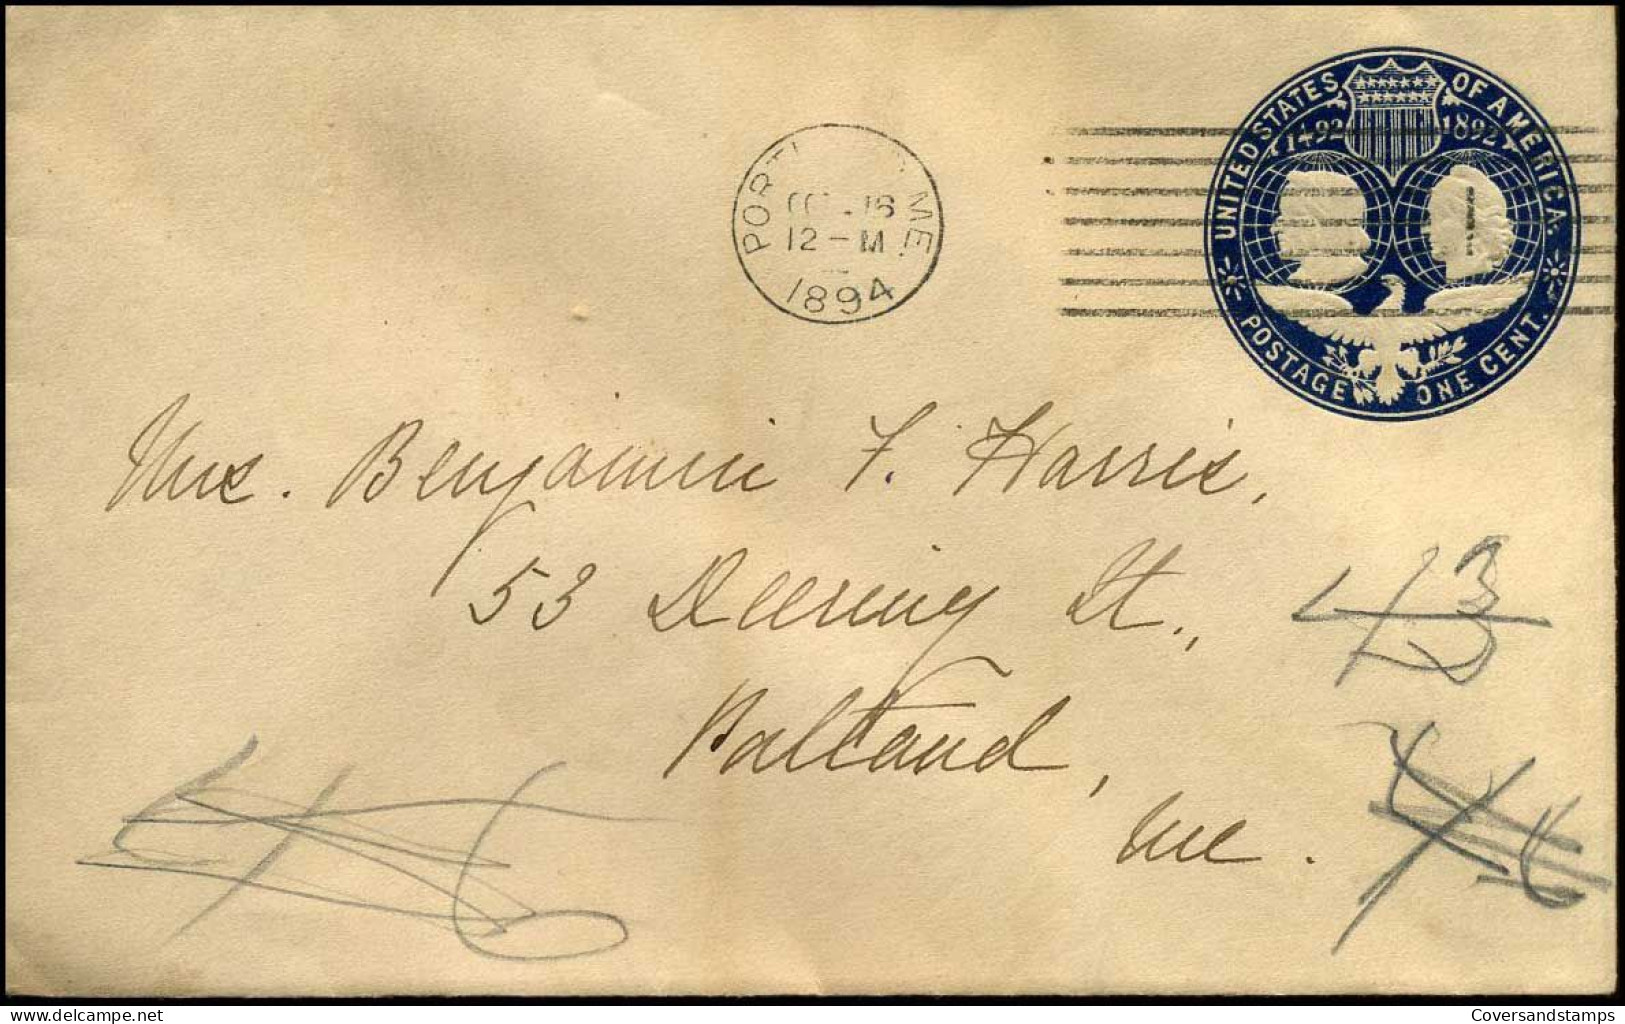 UNITED STATES OF AMERICA.
1492 1892
POSTAGE ONE CENT.
PORTLAND ME.
OCT 16
12-M
1894
Mrs. Benjamin F. Harris,
53 Deering St.,
Portland,
Me.
43
46
Coversandstamps.com
Coversandstamps